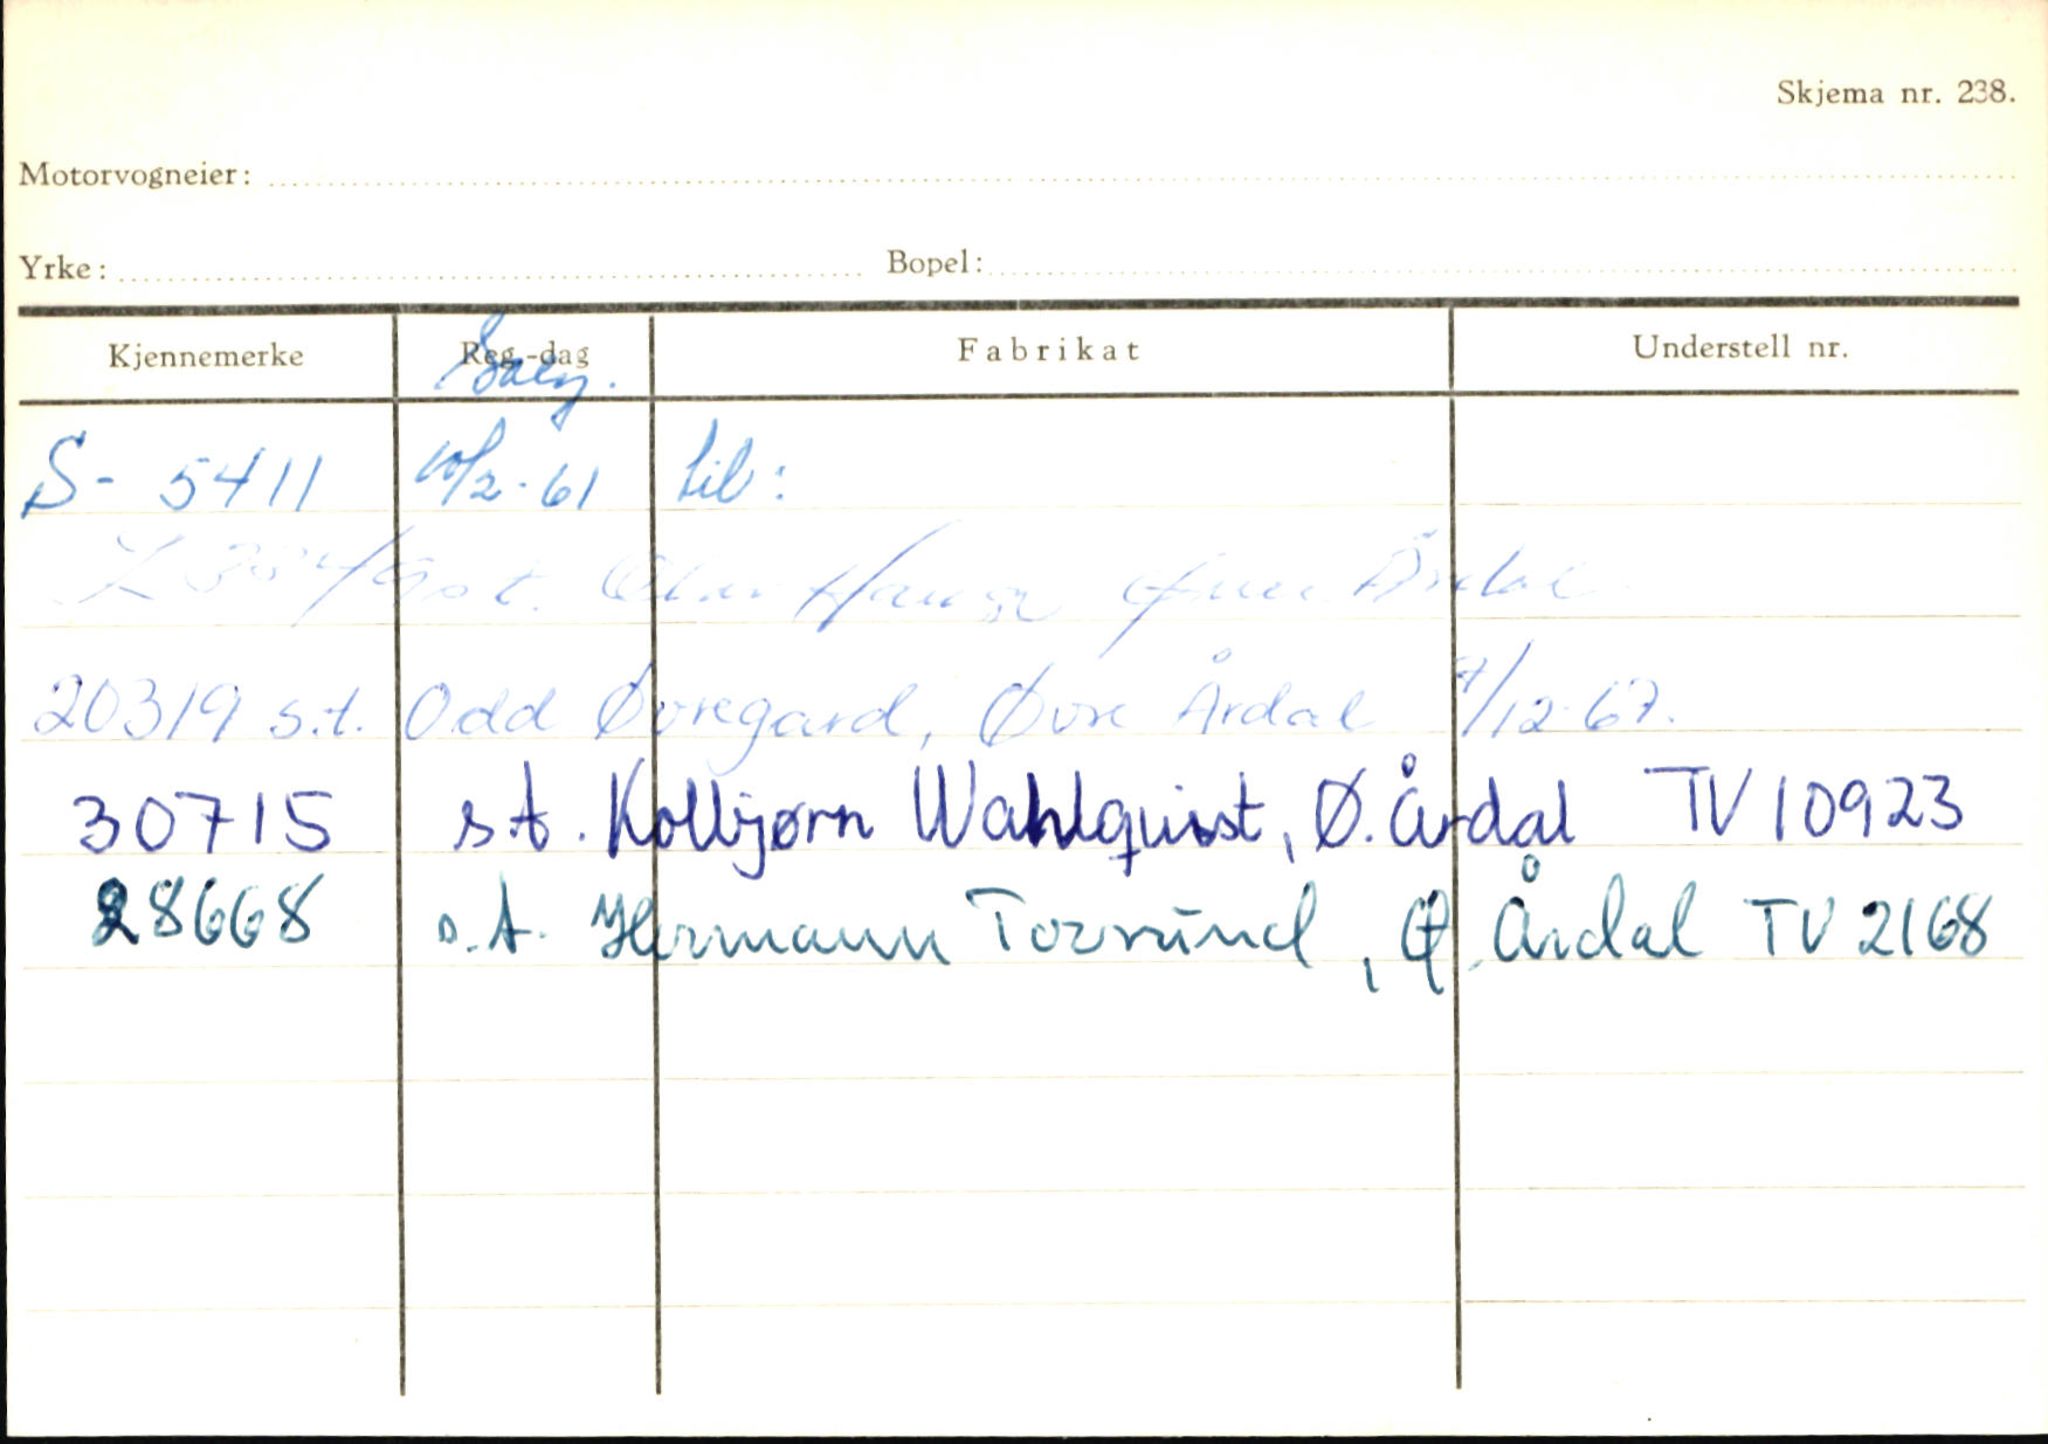 Skjema nr. 238.
Motorvogneier:
Yrke: Bopel:
Kjennemerke Reg.-dag Fabrikat Understell nr.
S- 5411 10/2-61 til:
s.t. Hansen Årdal
20319 s.t. Odd Øvregard, Øvre Årdal 7/12-67.
30715 s.t. Kolbjørn Wahlquist, Ø. Årdal TV 10923
28668 s.t. Hermann Torvund, Ø. Årdal TV 2168